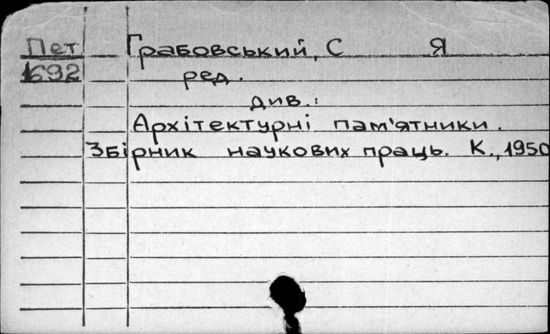 Пет Грабовський, С Я
1692 ред.
див.:
Архітектурні пам'ятники.
Збірник наукових праць. К., 1950